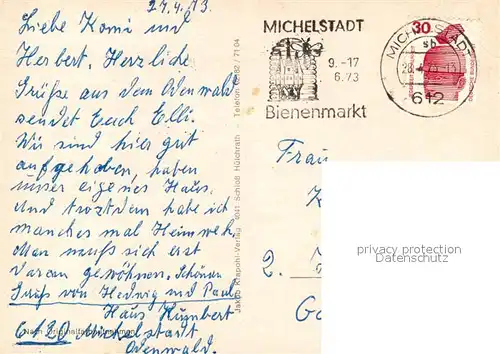 24.4.73.
Liebe Komi und
Herbert. Herzliche
Grüsse aus dem Odenwald
sendet Euch Elli.
Wir sind hier gut
aufgehoben, haben
unser eigenes Haus.
Und trotzdem habe ich
manches mal Heimweh.
Man muß sich erst
daran gewöhnen. Schönen
Gruß von Hedwig und Paul
Haus Humbert
6120 Michelstadt
Odenwald.
Jakob Krapohl-Verlag 4041 Schloß Hülchrath Telefon 02182 / 71 04
MICHELSTADT
9.-17
6.73
Bienenmarkt
MICHELSTADT
sb
28.-4.
612
30
Frau
2.
privacy protection
Datenschutz